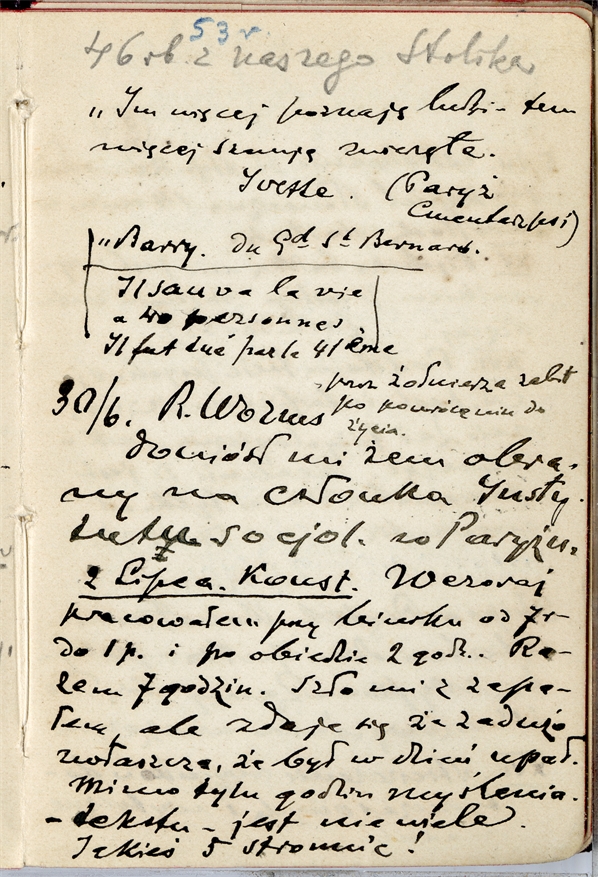 53 r
46 rb z naszego Stolika
„Im więcej poznaję ludzi – tem
więcej szanuję zwierzęta.
Ivette. (Paryż
Cmentarz psi)
„Barry. du Gd St Bernard.
Il sauva la vie
a 40 personnes
Il fut tué par la 41ème
przez żołnierza zabit
po powróceniu do
życia.
30/6. R. Worms
doniósł mi żem obra-
ny na członka Insty-
tutu Socjol. w Paryżu.
2 Lipca. Konst. Wczoraj
pracowałem przy biurku od 7 r
do 1 p. i po obiedzie 2 godz. Ra-
zem 7 godzin. Szło mi z zapa-
łem, ale zdaje się że za dużo
zwłaszcza, że był w dzień upał.
Mimo tylu godzin myślenia.
– tekstu – jest niewiele.
Jakieś 5 stronic!